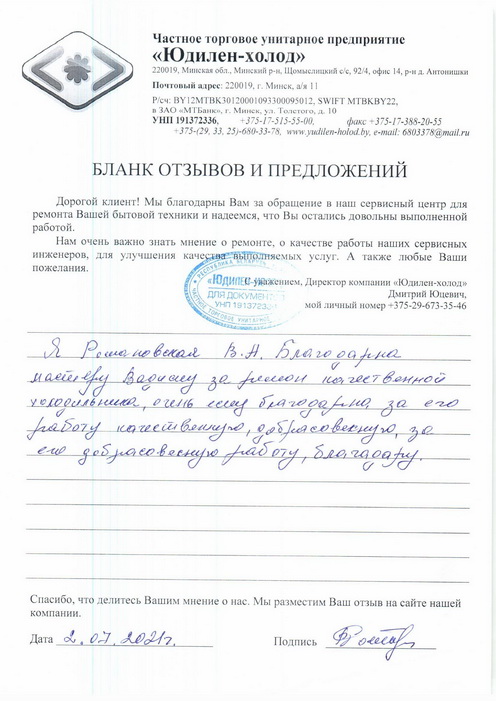 Частное торговое унитарное предприятие
«Юдилен-холод»
220019, Минская обл., Минский р-н, Щомыслицкий с/с, 92/4, офис 14, р-н д. Антонишки
Почтовый адрес: 220019, г. Минск, а/я 11
Р/сч: BY12MTBK30120001093300095012, SWIFT MTBKBY22,
в ЗАО «МТБанк», г. Минск, ул. Толстого, д. 10
УНП 191372336, +375-17-515-55-00, факс +375-17-388-20-55
+375-(29, 33, 25)-680-33-78, www.yudilen-holod.by, e-mail: 6803378@mail.ru
БЛАНК ОТЗЫВОВ И ПРЕДЛОЖЕНИЙ
Дорогой клиент! Мы благодарны Вам за обращение в наш сервисный центр для
ремонта Вашей бытовой техники и надеемся, что Вы остались довольны выполненной
работой.
Нам очень важно знать мнение о ремонте, о качестве работы наших сервисных
инженеров, для улучшения качества выполняемых услуг. А также любые Ваши
пожелания.
С уважением, Директор компании «Юдилен-холод»
Дмитрий Юцевич,
мой личный номер +375-29-673-35-46
РЕСПУБЛИКА БЕЛАРУСЬ
«ЮДИЛЕН
ДЛЯ ДОКУМЕНТ
УНП 191372336
ЧАСТНОЕ ТОРГОВОЕ УНИТАРНОЕ
Я Романовская В.А. Благодарна
мастеру Вадиму за ремон качественной
холодильника, очень ему благодарна за его
работу качественную, добрасовесную, за
его добрасовесную работу, благадару.
Спасибо, что делитесь Вашим мнение о нас. Мы разместим Ваш отзыв на сайте нашей
компании.
Дата 2.07.2021г. Подпись